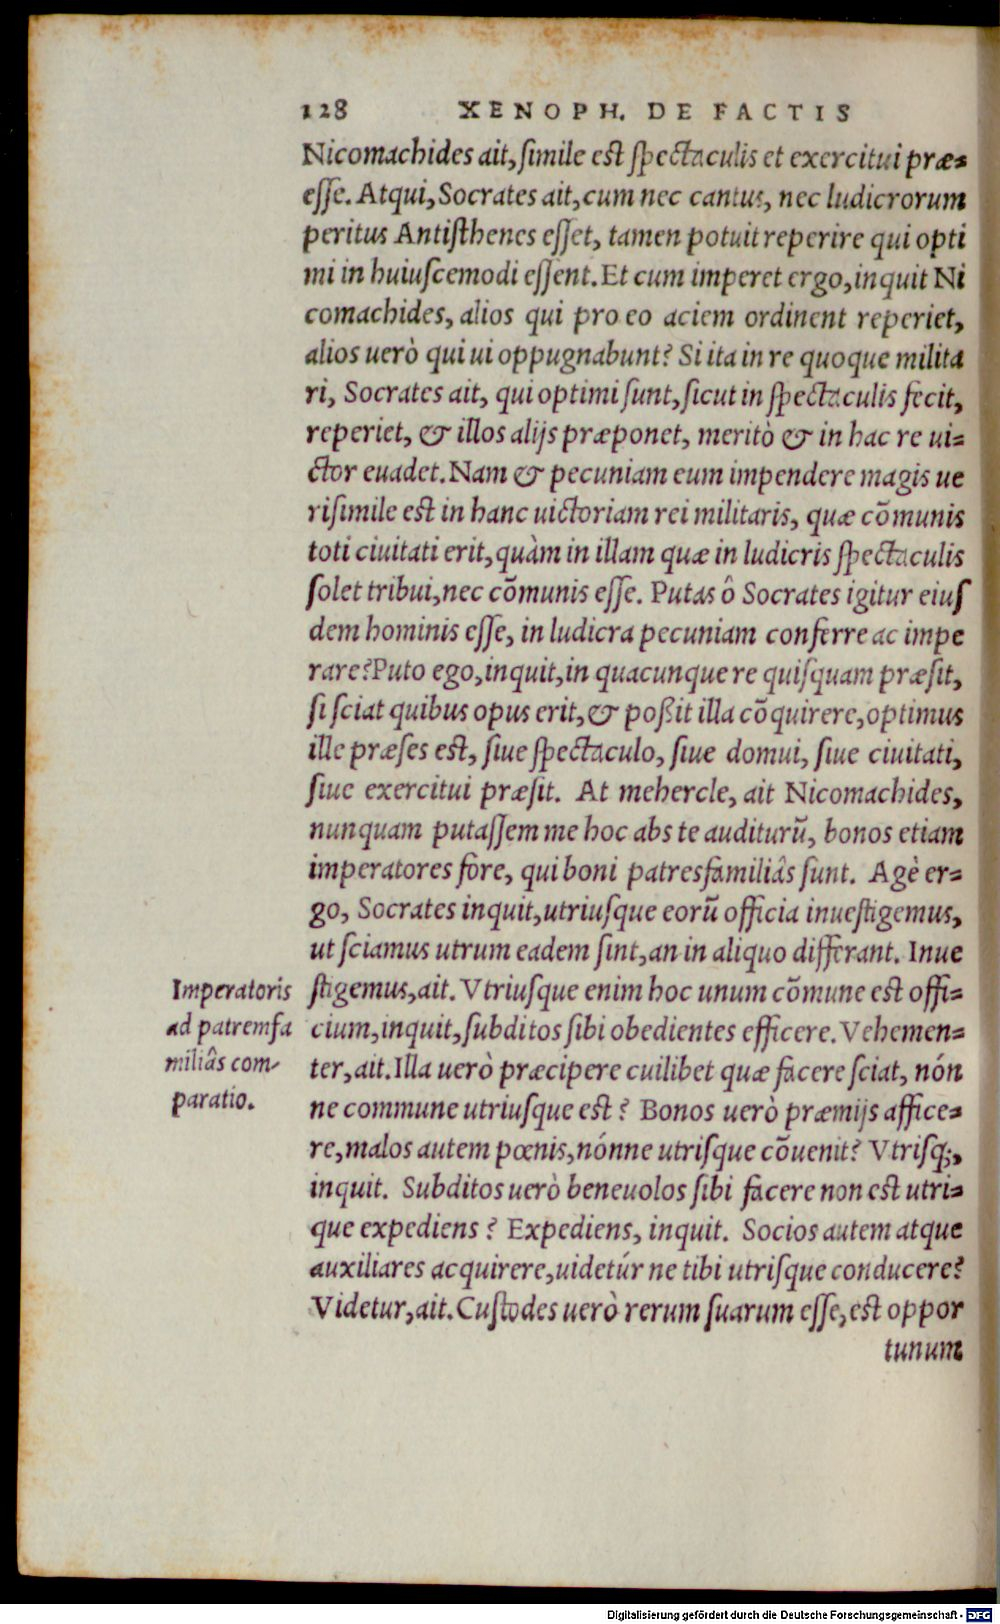 128 XENOPH. DE FACTIS
Nicomachides ait, simile est spectaculis et exercitui præ=
esse. Atqui, Socrates ait, cum nec cantus, nec ludicrorum
peritus Antisthenes esset, tamen potuit reperire qui opti
mi in huiuscemodi essent. Et cum imperet ergo, inquit Ni
comachides, alios qui pro eo aciem ordinent reperiet,
alios uerò qui ui oppugnabunt? Si ita in re quoque milita
ri, Socrates ait, qui optimi sunt, sicut in spectaculis fecit,
reperiet, & illos alijs præponet, meritò & in hac re ui=
ctor euadet. Nam & pecuniam eum impendere magis ue
risimile est in hanc uictoriam rei militaris, quæ cõmunis
toti ciuitati erit, quàm in illam quæ in ludicris spectaculis
solet tribui, nec cõmunis esse. Putas ô Socrates igitur eius
dem hominis esse, in ludicra pecuniam conferre ac impe
rare? Puto ego, inquit, in quacunque re quisquam præsit,
si sciat quibus opus erit, & poßit illa cõquirere, optimus
ille præses est, siue spectaculo, siue domui, siue ciuitati,
siue exercitui præsit. At mehercle, ait Nicomachides,
nunquam putassem me hoc abs te auditurũ, bonos etiam
imperatores fore, qui boni patresfamiliâs sunt. Agè er=
go, Socrates inquit, utriusque eorũ officia inuestigemus,
ut sciamus utrum eadem sint, an in aliquo differant. Inue
stigemus, ait. Vtriusque enim hoc unum cõmune est offi=
cium, inquit, subditos sibi obedientes efficere. Vehemen=
ter, ait. Illa uerò præcipere cuilibet quæ facere sciat, nón
ne commune utriusque est? Bonos uerò præmijs affice=
re, malos autem pœnis, nónne utrisque cõuenit? Vtrisq;,
inquit. Subditos uerò beneuolos sibi facere non est utri=
que expediens? Expediens, inquit. Socios autem atque
auxiliares acquirere, uidetúr ne tibi utrisque conducere?
Videtur, ait. Custodes uerò rerum suarum esse, est oppor
tunum
Imperatoris
ad patremfa
miliâs com-
paratio.
Digitalisierung gefördert durch die Deutsche Forschungsgemeinschaft - DFG